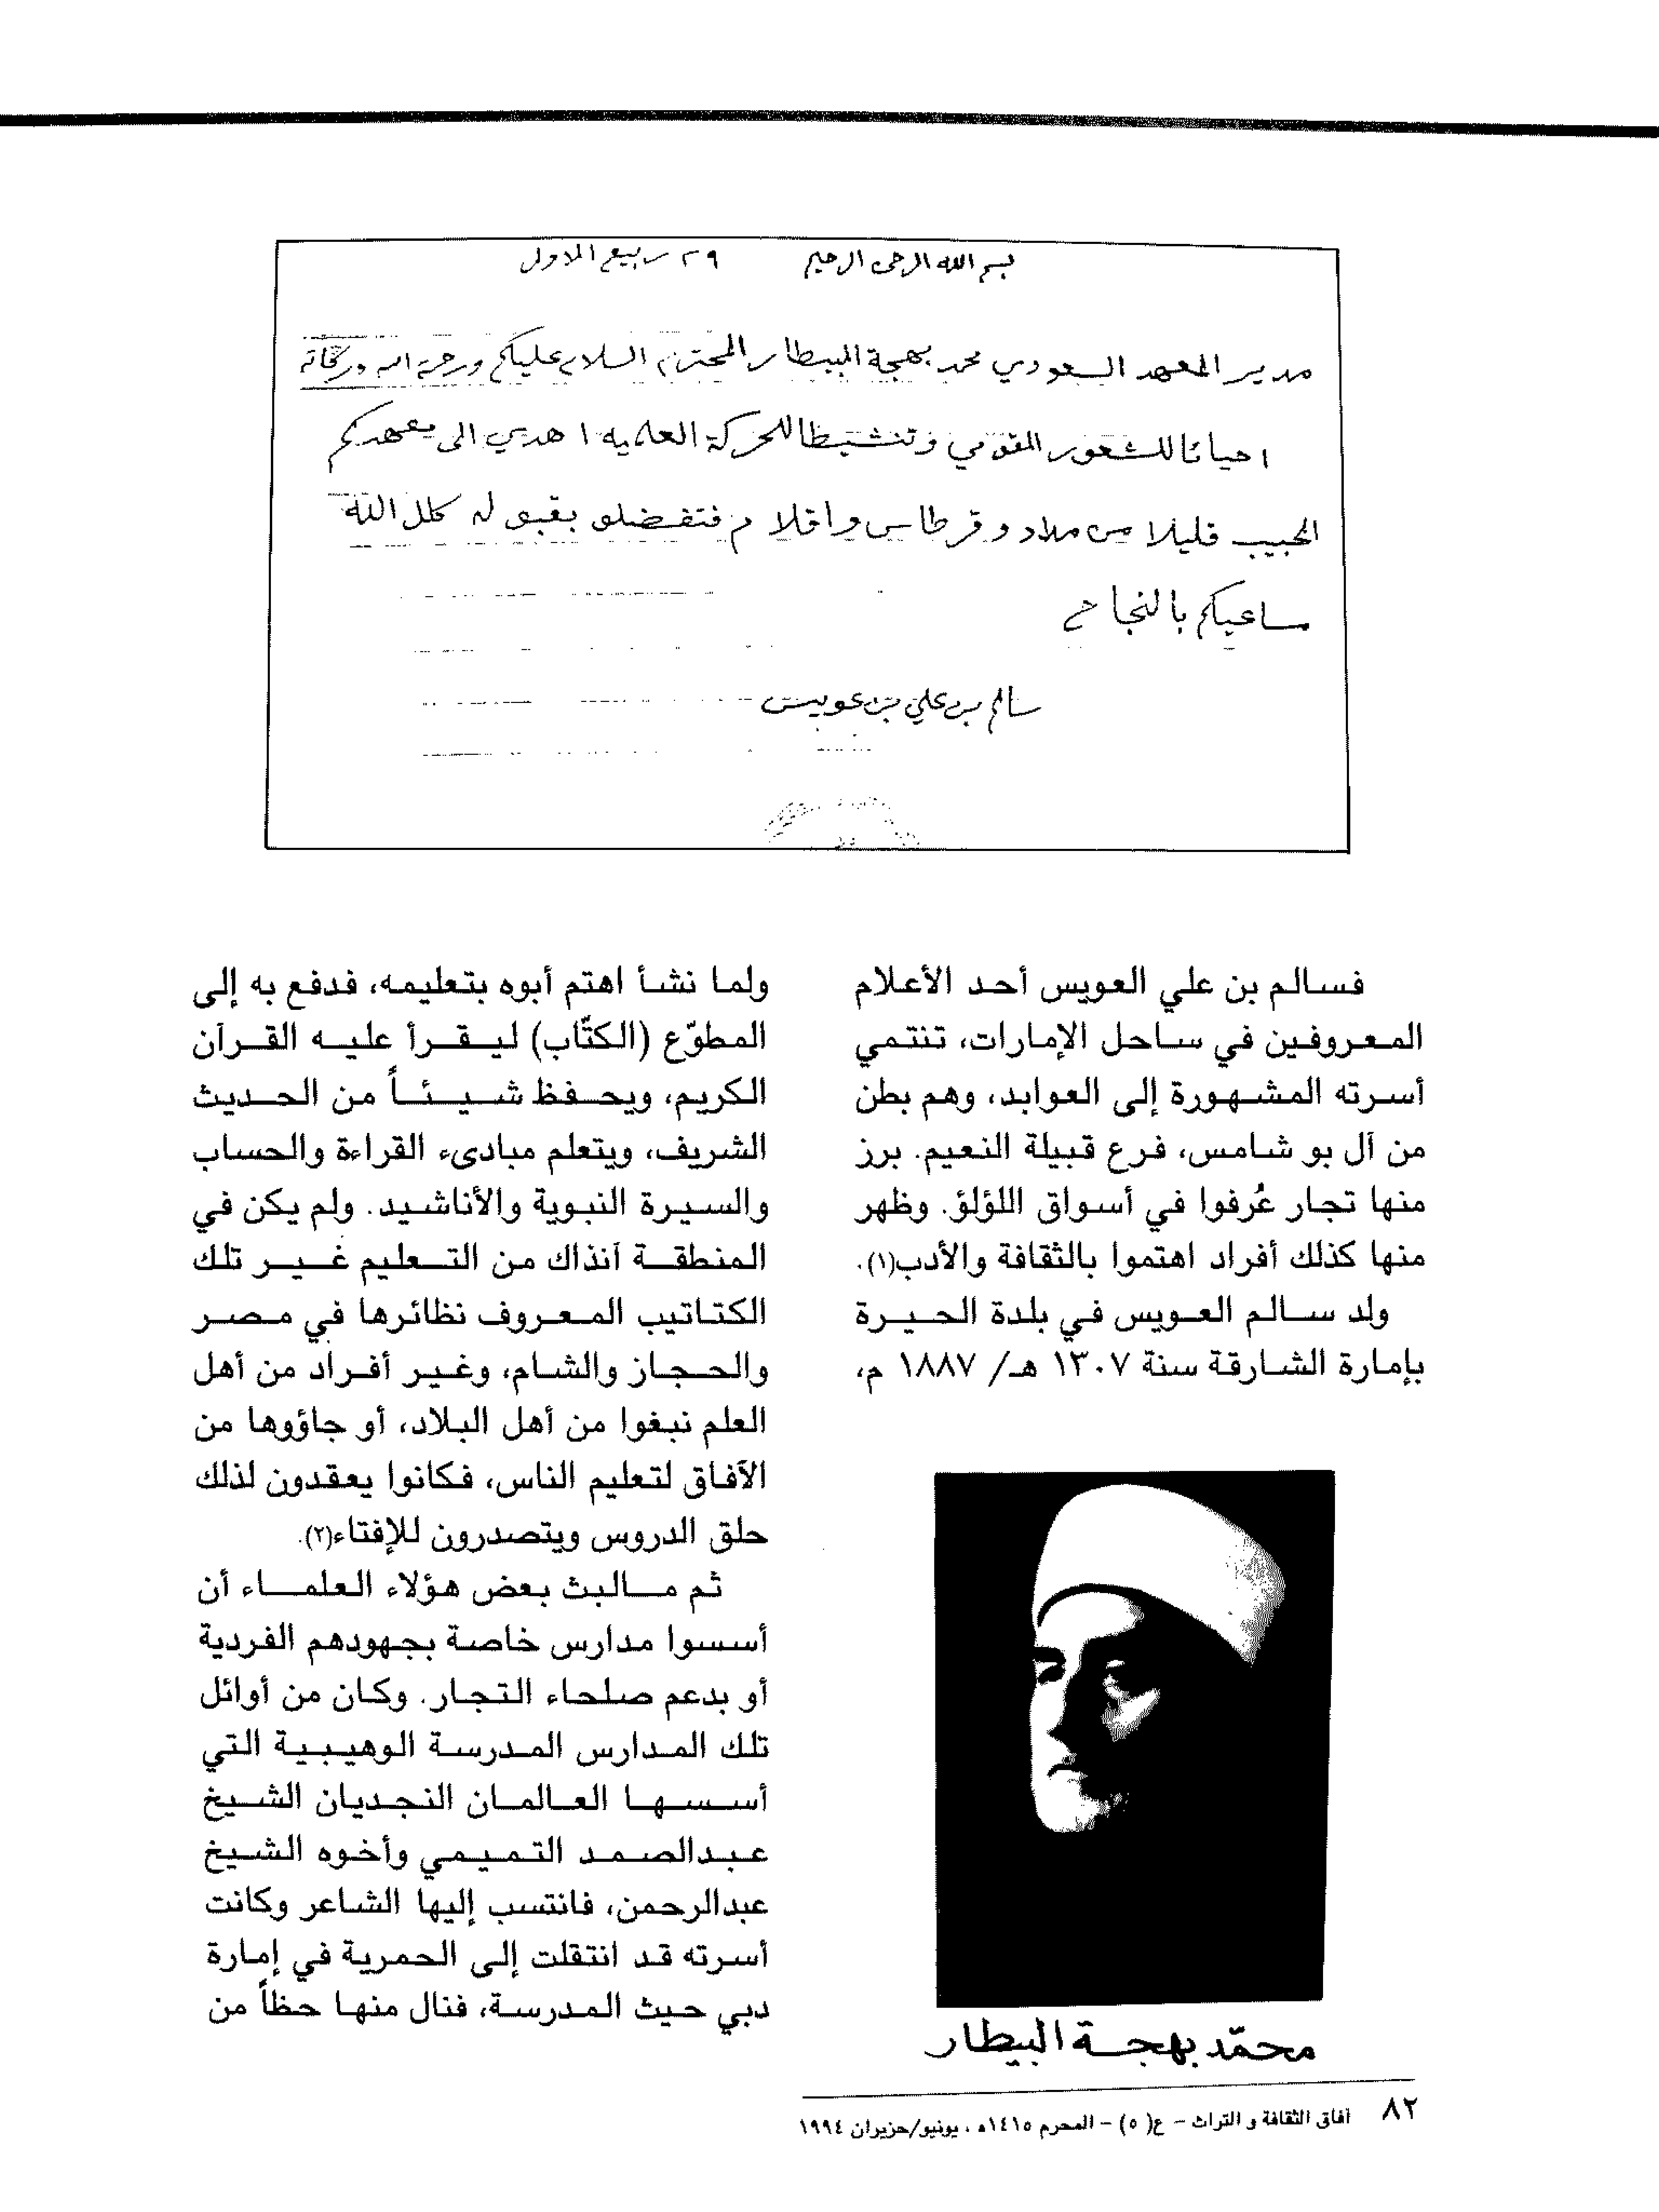 بسم الله الرحمن الرحيم ٢٩ ربيع الاول
مدير المعهد السعودي محمد بهجة البيطار المحترم السلام عليكم ورحمة الله وبركاته
احيائا للشعور القومي وتنشيطا للحركة العلميه اهدي الى معهدكم
الحبيب قليلا من مداد وقرطاس واقلام فتفضلو بقبوله كلل الله
مساعيكم بالنجاح
سالم بن علي بن عويس
فسالم بن علي العويس أحد الأعلام
المعروفين في ساحل الإمارات، تنتمي
أسرته المشهورة إلى العوابد، وهم بطن
من آل بو شامس، فرع قبيلة النعيم. برز
منها تجار عُرفوا في أسواق اللؤلؤ. وظهر
منها كذلك أفراد اهتموا بالثقافة والأدب(١).
ولد سالم العويس في بلدة الحيرة
بإمارة الشارقة سنة ١٣٠٧ هـ/ ١٨٨٧ م،
محمّد بهجة البيطار
ولما نشأ اهتم أبوه بتعليمه، فدفع به إلى
المطوّع (الكتّاب) ليقرأ عليه القرآن
الكريم، ويحفظ شيئاً من الحديث
الشريف، ويتعلم مبادىء القراءة والحساب
والسيرة النبوية والأناشيد. ولم يكن في
المنطقة آنذاك من التعليم غير تلك
الكتاتيب المعروف نظائرها في مصر
والحجاز والشام، وغير أفراد من أهل
العلم نبغوا من أهل البلاد، أو جاؤوها من
الآفاق لتعليم الناس، فكانوا يعقدون لذلك
حلق الدروس ويتصدرون للإفتاء(٢).
ثم مالبث بعض هؤلاء العلماء أن
أسسوا مدارس خاصة بجهودهم الفردية
أو بدعم صلحاء التجار. وكان من أوائل
تلك المدارس المدرسة الوهيبية التي
أسسها العالمان النجديان الشيخ
عبدالصمد التميمي وأخوه الشيخ
عبدالرحمن، فانتسب إليها الشاعر وكانت
أسرته قد انتقلت إلى الحمرية في إمارة
دبي حيث المدرسة، فنال منها حظاً من
٨٢ آفاق الثقافة و التراث - ع( ٥) - المحرم ١٤١٥هـ ، يونيو/حزيران ١٩٩٤